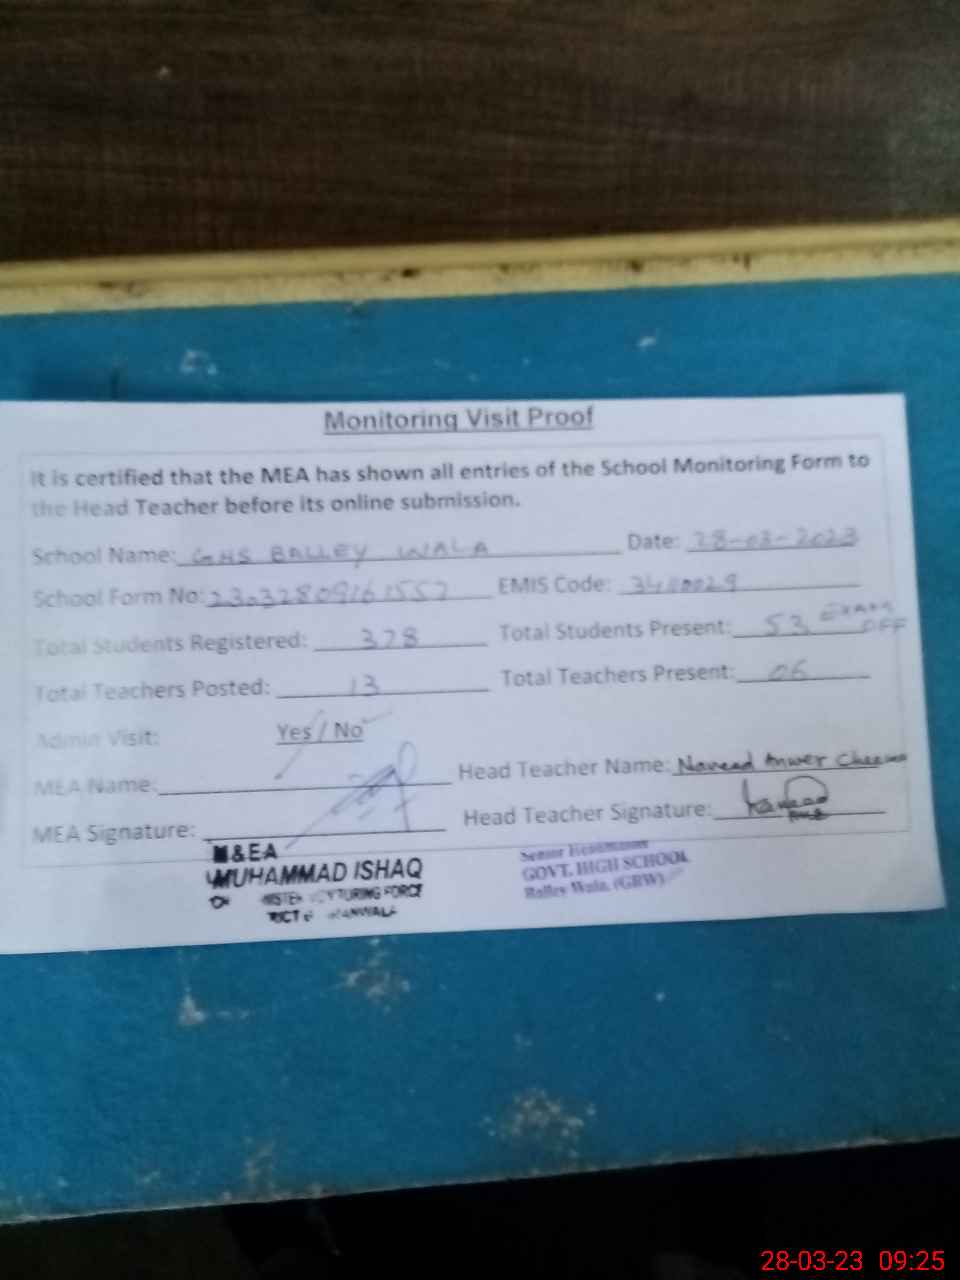 Monitoring Visit Proof
It is certified that the MEA has shown all entries of the School Monitoring Form to
the Head Teacher before its online submission.
School Name: GHS BALLEY WALA Date: 28-03-2023
School Form No: EMIS Code:
Total Students Registered: 378 Total Students Present: 53 EXAM OFF
Total Teachers Posted: 13 Total Teachers Present: 06
Admin Visit: Yes / No
MEA Name: Head Teacher Name: Naveed Anwer Cheema
MEA Signature: Head Teacher Signature:
M&EA
MUHAMMAD ISHAQ
Senior Headmaster
GOVT. HIGH SCHOOL
Balley Wala, (GRW)
28-03-23 09:25